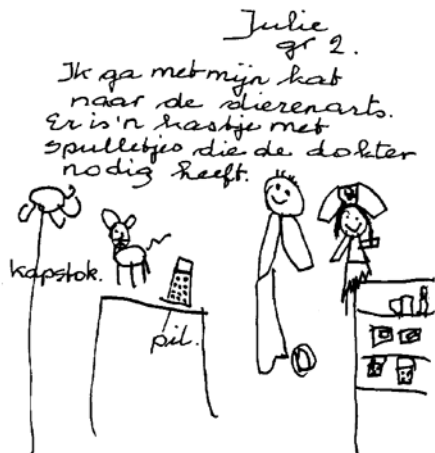 Julie
gr 2.
Ik ga met mijn kat
naar de dierenarts.
Er is 'n kastje met
spulletjes die de dokter
nodig heeft.
kapstok.
pil.